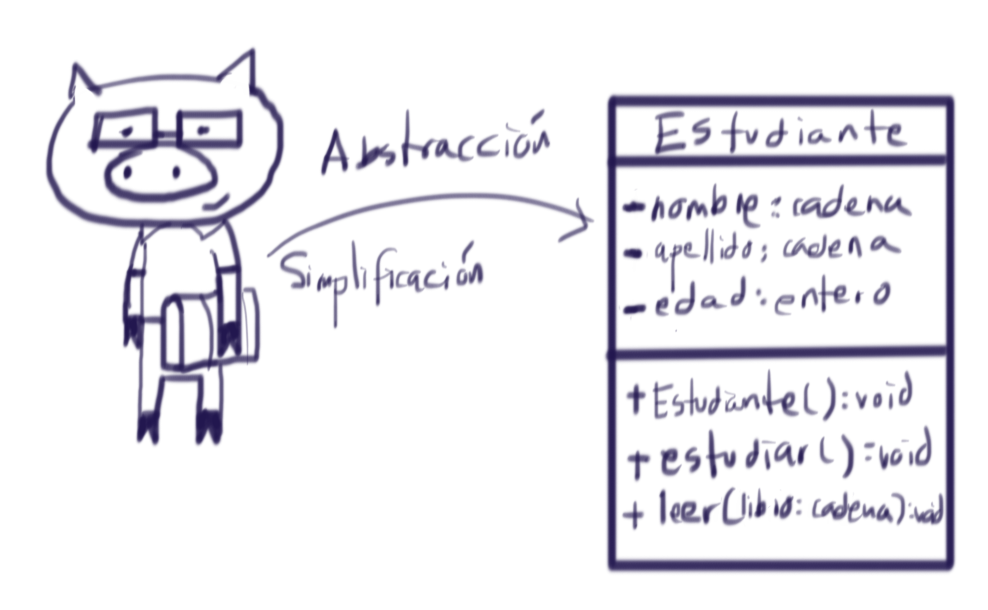 Abstracción
Simplificación
Estudiante
- nombre: cadena
- apellido: cadena
- edad: entero
+ Estudiante(): void
+ estudiar(): void
+ leer(libro: cadena): void